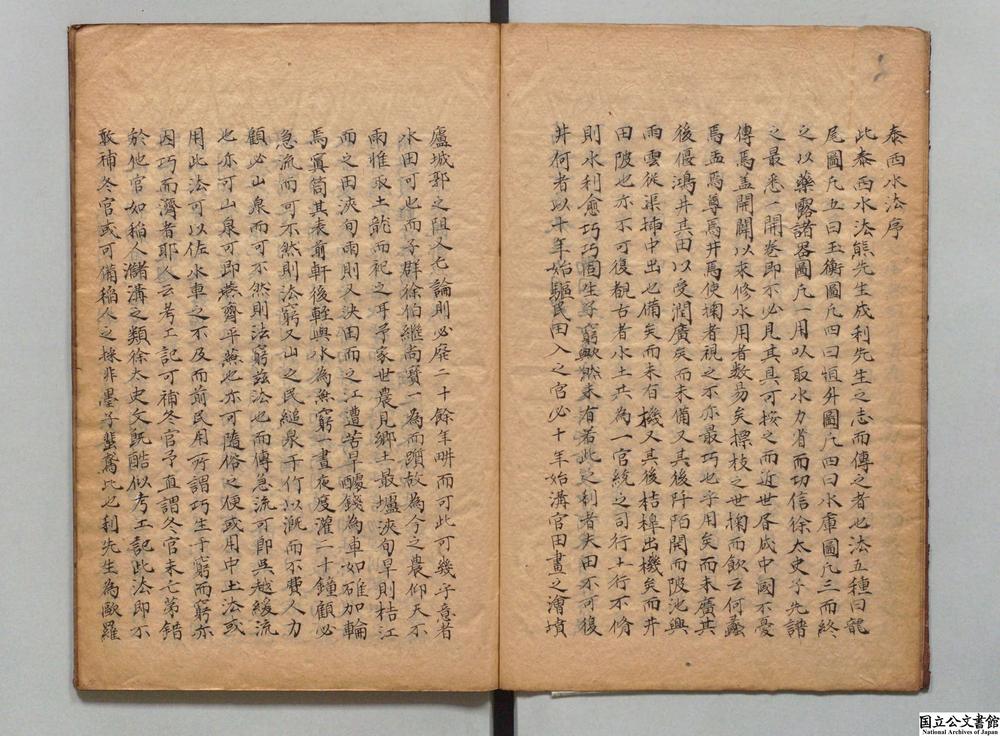 泰西水法序
此泰西水法熊先生成利先生之志而傳之者也法五種曰龍
尾圖凡五曰玉衡圖凡四曰恒升圖凡四曰水庫圖凡三而終
之以藥露諸器圖凡一用以取水力省而功倍徐太史子先譜
之最悉一開卷即不必見其具可按之而近世居成中國不憂
傳焉蓋開闢以來修水用者數易矣摽枝之世掬而飲云何蠡
焉盂焉尊焉井焉使掬者視之不亦最巧也乎用矣而未廣其
後優鴻井其田以受潤廣矣而未備又其後阡陌開而陂池興
雨雲從渠揷中出也備矣而未有機又其後桔槹出機矣而井
田陂也亦不可復覩古者水土共為一官統之司行土行不脩
則水利愈巧巧固生于窮歟然未有若此之利者夫田不可復
井何者以十年始驅民田入之官必十年始溝官田畫之澮墳
廬城郭之阻又尤論則必棄二十餘年畊而可此可幾乎意者
水田可也而子群徐伯繼尚讚一為而躓故為今之農仰天不
雨惟取土龍而祀之耳予家世農見鄉土最壚浹旬旱則枯江
而之田浹旬雨則又決田而之江遭苦旱醵錢為車如碓加輪
焉寘筒其表前軒後輊與水為無窮一晝夜度灌二十鍾顧必
急流而可不然則法窮又山之民縋泉于竹以溉而不費人力
顧必山泉而可不然則法窮茲法也而傳急流可即吳越緩流
也亦可山泉可即燕齊平蕪也亦可隨俗之便或用中土法或
用此法可以佐水車之不及而前民用所謂巧生于窮而窮亦
因巧而濟者耶人云考工記可補冬官予直謂冬官未亡第錯
於他官如稻人瀦溝之類徐太史文既酷似考工記此法即不
敢補冬官或可備稻人之採非墨子蜚鳶比也利先生為歐羅
国立公文書館
National Archives of Japan